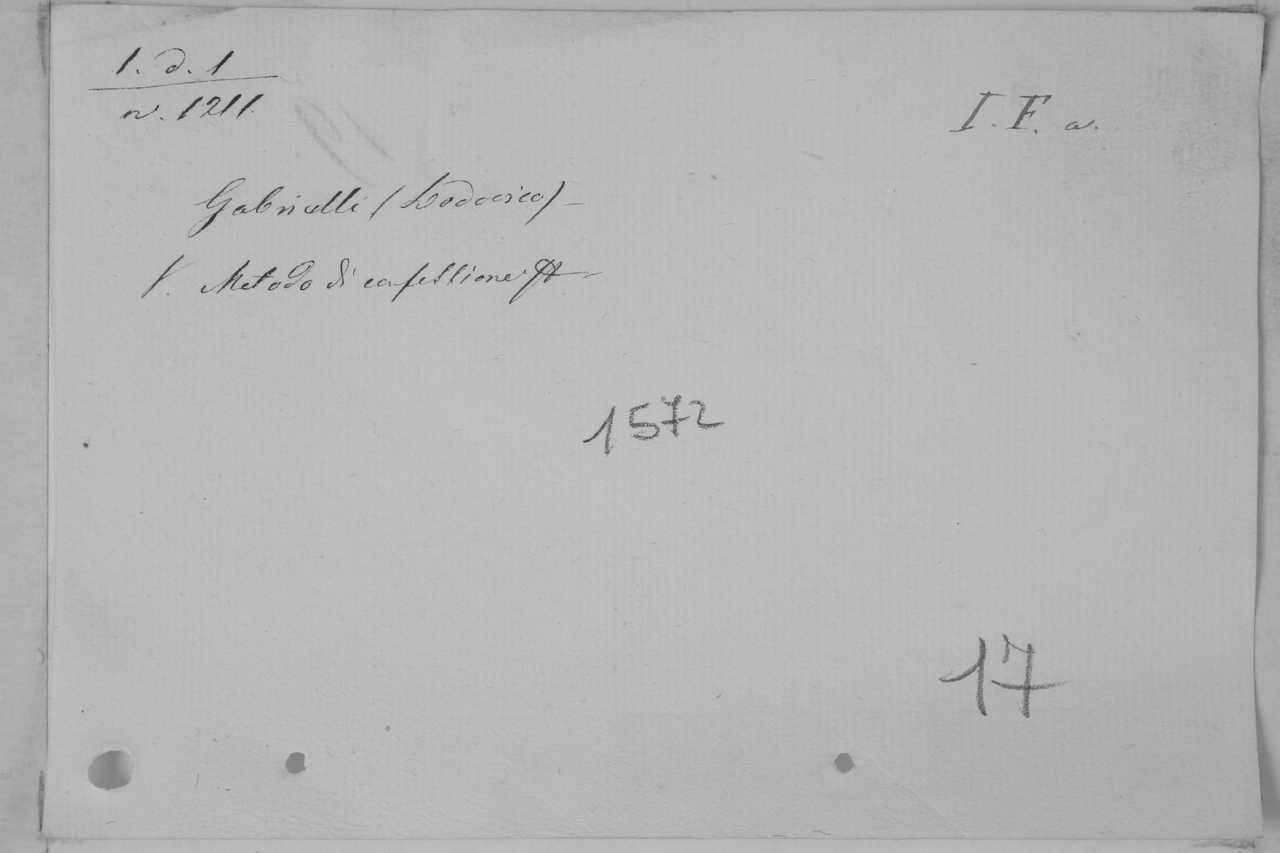 1. d. 1
n. 1211.
I. F. a.
Gabrielli (Lodovico) -
V. Metodo di confessione &
1572
17